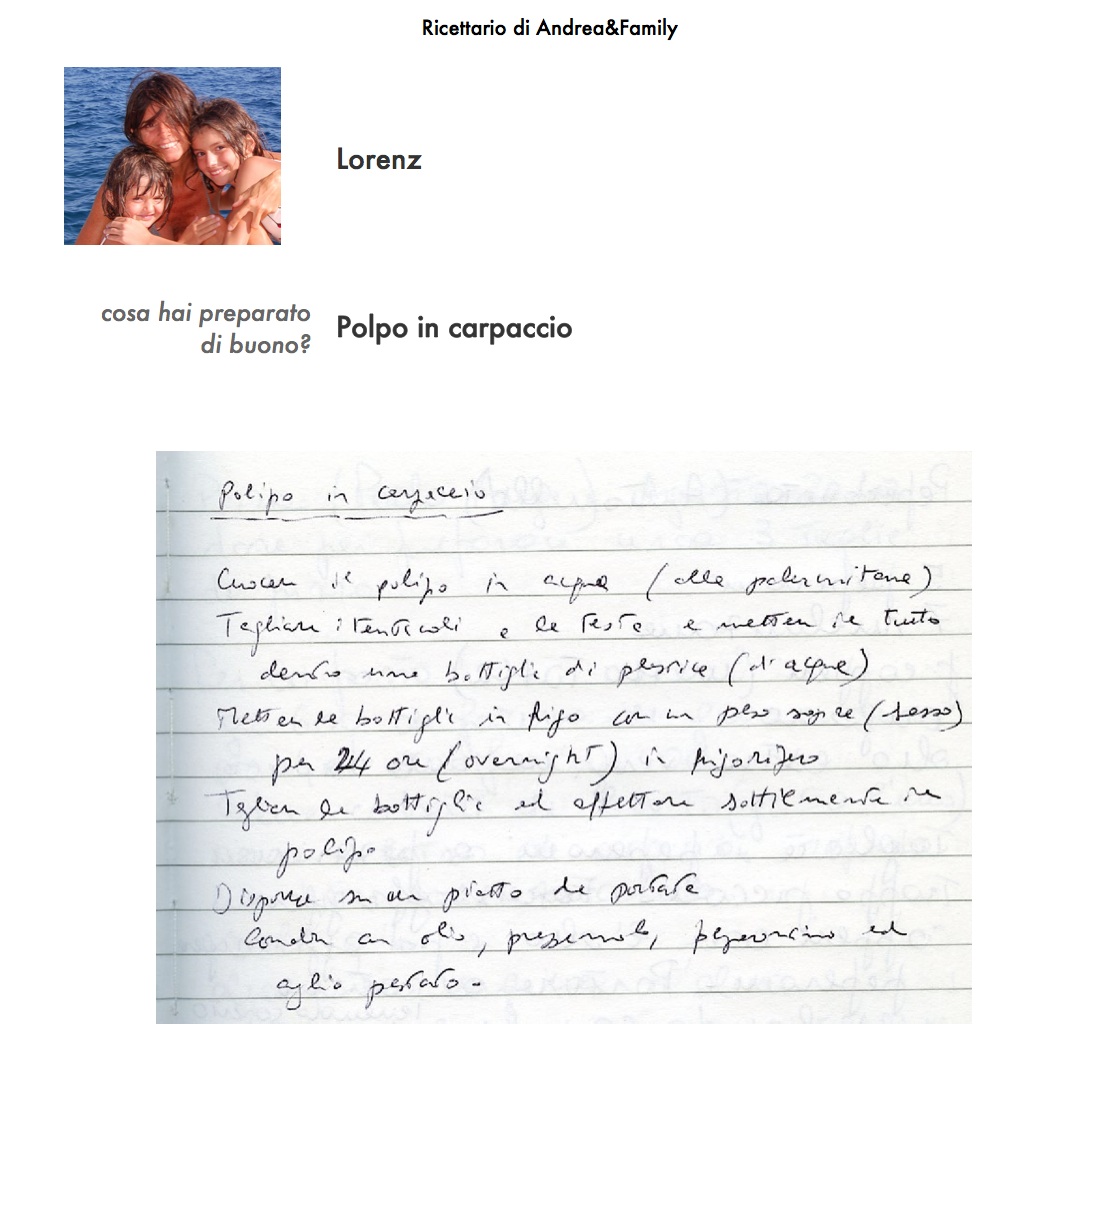 Ricettario di Andrea&Family
Lorenz
cosa hai preparato
di buono?
Polpo in carpaccio
Polipo in carpaccio
Cuocere il polipo in acqua (alla palermitana)
Tagliare i tenticoli e la testa e mettere il tutto
dentro una bottiglia di plastica (d'acqua)
Mettere la bottiglia in frigo con un peso sopra (sasso)
per 24 ore (overnight) in frigorifero
Tagliare la bottiglia ed affettare sottilmente il
polipo
Disporre su un piatto da portata
Condire con olio, prezzemolo, peperoncino ed
aglio pestato.